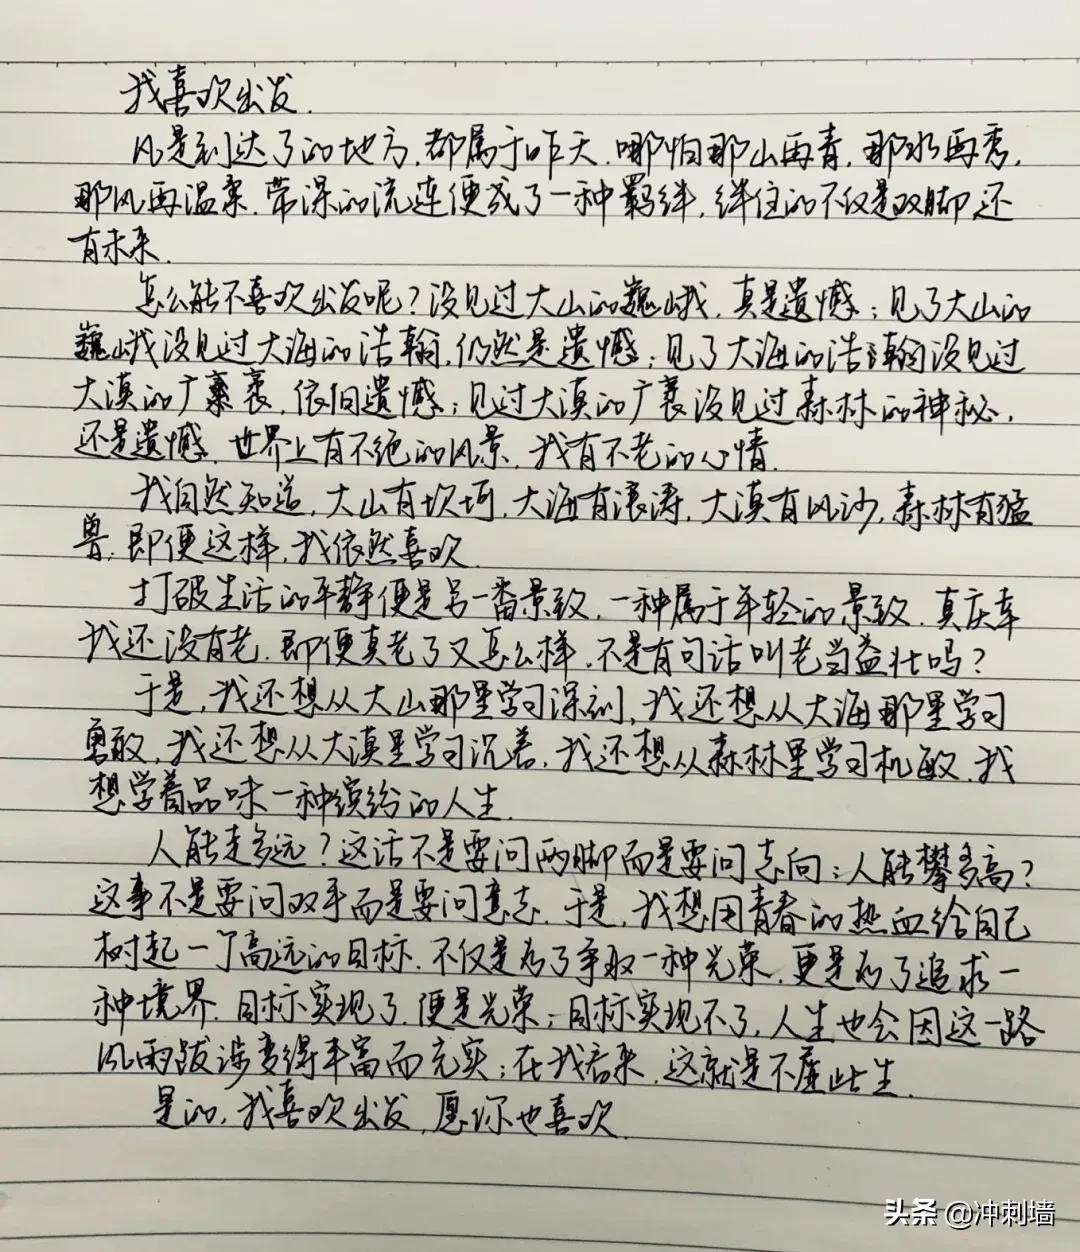 我喜欢出发.
凡是到达了的地方,都属于昨天.哪怕那山再青,那水再秀,
那风再温柔.带深的流连便成了一种羁绊,绊住的不仅是双脚,还
有未来.
怎么能不喜欢出发呢?没见过大山的巍峨,真是遗憾;见了大山的
巍峨没见过大海的浩瀚,仍然是遗憾;见了大海的浩瀚没见过
大漠的广袤,依旧遗憾;见过大漠的广袤没见过森林的神秘,
还是遗憾.世界上有不绝的风景,我有不老的心情.
我自然知道,大山有坎坷,大海有浪涛,大漠有风沙,森林有猛
兽.即便这样,我依然喜欢.
打破生活的平静便是另一番景致,一种属于年轻的景致.真庆幸
我还没有老.即便真老了又怎么样,不是有句话叫老当益壮吗?
于是,我还想从大山那里学习深刻,我还想从大海那里学习
勇敢,我还想从大漠里学习沉着,我还想从森林里学习机敏.我
想学着品味一种缤纷的人生.
人能走多远?这话不是要问两脚而是要问志向;人能攀多高?
这事不是要问双手而是要问意志.于是,我想用青春的热血给自己
树起一个高远的目标.不仅是为了争取一种光荣,更是为了追求一
种境界.目标实现了,便是光荣;目标实现不了,人生也会因这一路
风雨跋涉变得丰富而充实;在我看来,这就是不虚此生.
是的,我喜欢出发,愿你也喜欢.
头条 @冲刺墙